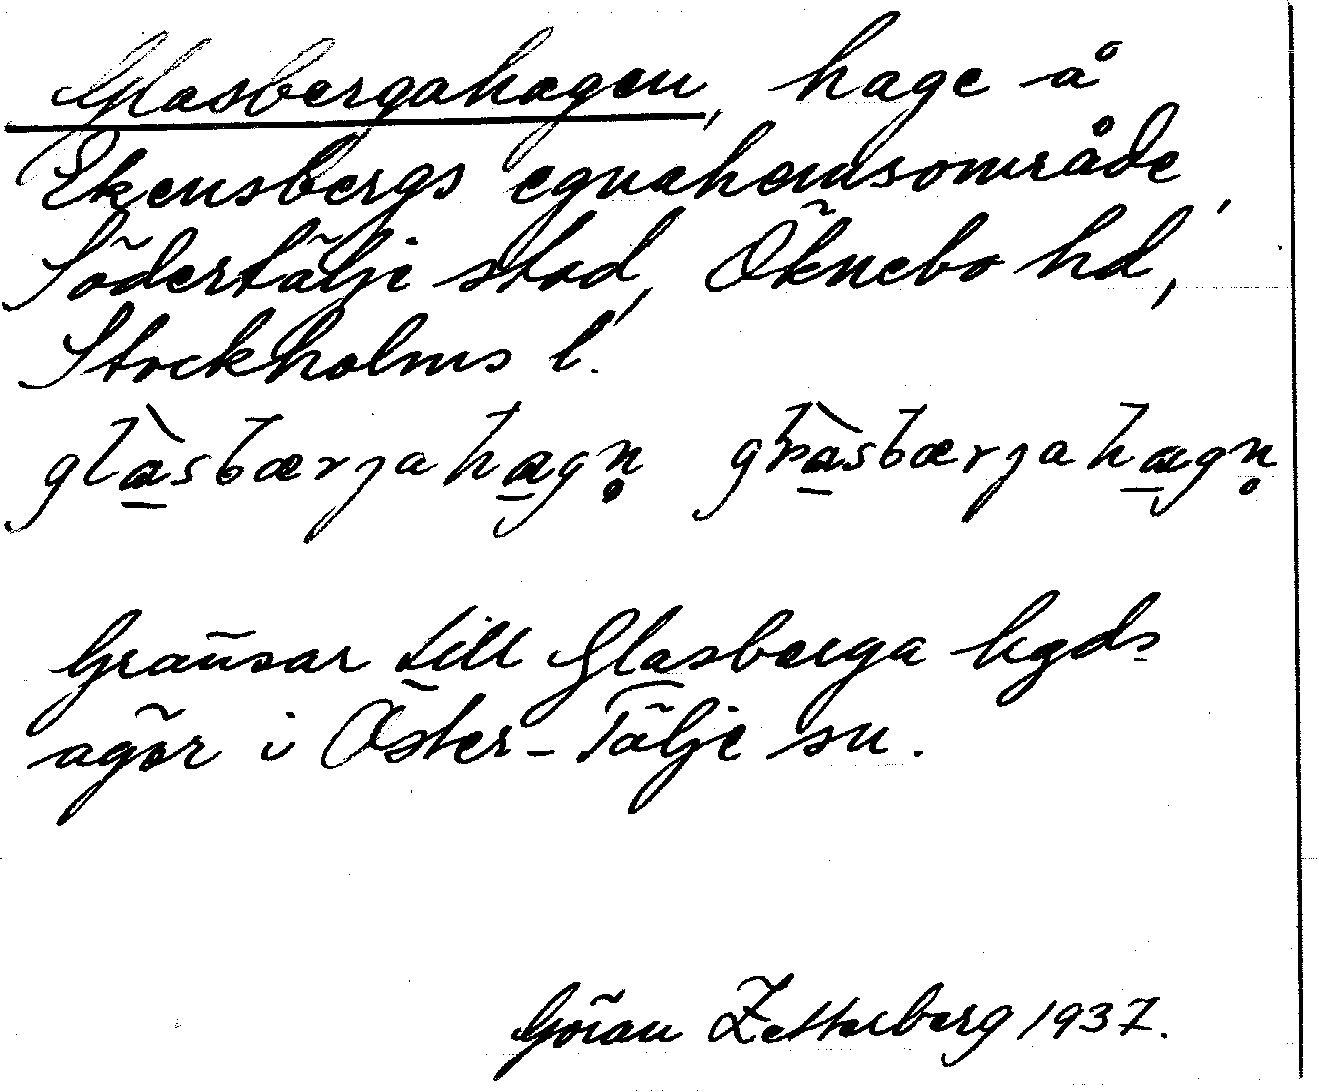 Glasbergahagen, hage å
Ekensbergs egnahemsområde,
Södertälje stad, Öknebo hd,
Stockholms l.
glàsbærjahagn̥ glàsbærjahagn̥
Gränsar till Glasberga hgds
ägor i Öster-Tälje sn.
Göran Zetterberg 1937.